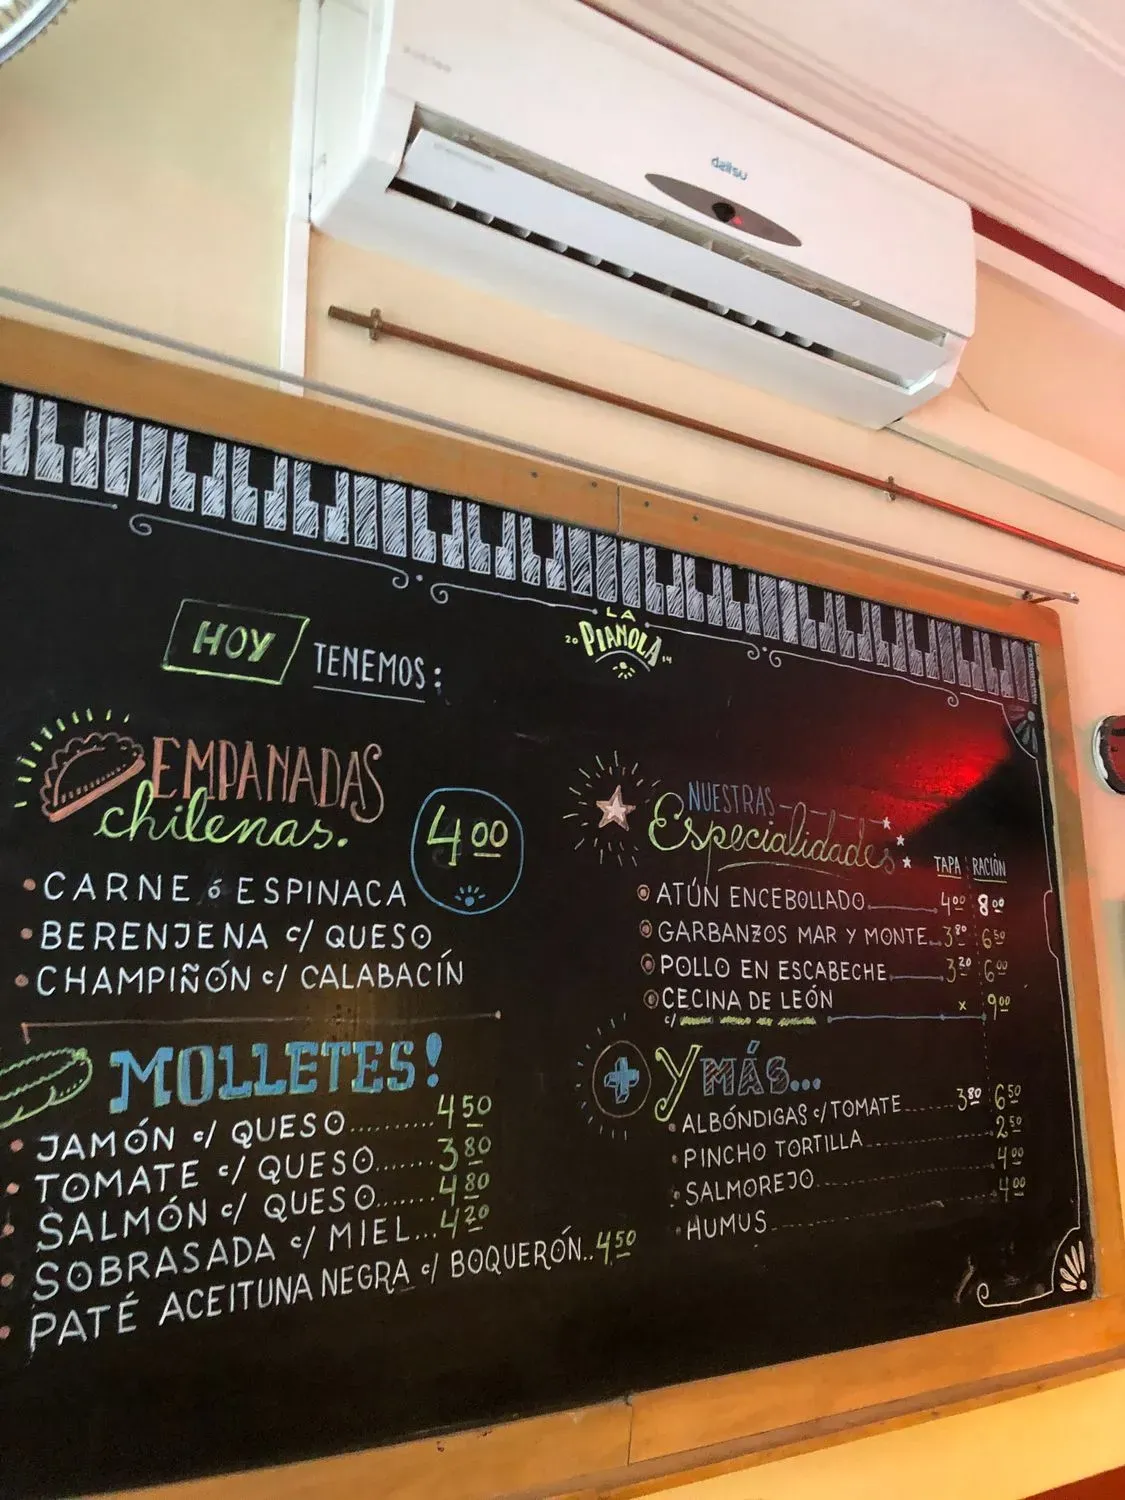 daitsu
LA
20 PIANOLA 14
HOY TENEMOS:
EMPANADAS
chilenas.
4.00
• CARNE ó ESPINACA
• BERENJENA c/ QUESO
• CHAMPIÑÓN c/ CALABACÍN
MOLLETES!
• JAMÓN c/ QUESO.......... 4 50
• TOMATE c/ QUESO....... 3 80
• SALMÓN c/ QUESO....... 4 80
• SOBRASADA c/ MIEL... 4 20
• PATÉ ACEITUNA NEGRA c/ BOQUERÓN.. 4 50
NUESTRAS
Especialidades
TAPA RACIÓN
ATÚN ENCEBOLLADO 4 00 8 00
GARBANZOS MAR Y MONTE 3 80 6 50
POLLO EN ESCABECHE 3 20 6 00
CECINA DE LEÓN
c/ x 9 00
+ Y MÁS...
• ALBÓNDIGAS c/ TOMATE 3 80 6 50
• PINCHO TORTILLA 2 50
• SALMOREJO 4 00
• HUMUS 4 00